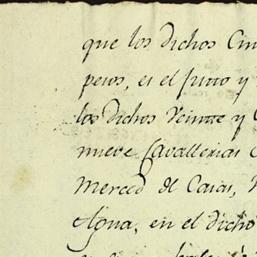 que los dichos Cin
pesos, es el justo y
los dichos Veinte y
nueve Cavallerias
Merced de Casas,
Agua, en el dicho